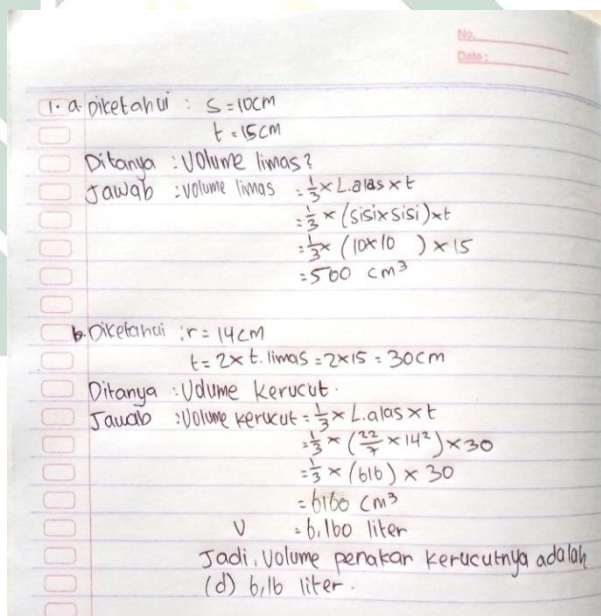 No.
Date :
1. a. Diketahui : S = 10cm
t = 15cm
Ditanya : Volume limas?
Jawab : volume limas = 1/3 x L.alas x t
= 1/3 x (sisi x sisi) x t
= 1/3 x (10x10 ) x 15
= 500 cm³
b. Diketahui : r = 14cm
t = 2 x t. limas = 2x15 = 30cm
Ditanya : Volume kerucut.
Jawab : Volume kerucut = 1/3 x L.alas x t
= 1/3 x (22/7 x 14²) x 30
= 1/3 x (616) x 30
= 6160 cm³
V = 6,160 liter
Jadi, Volume penakar kerucutnya adalah
(d) 6,16 liter.